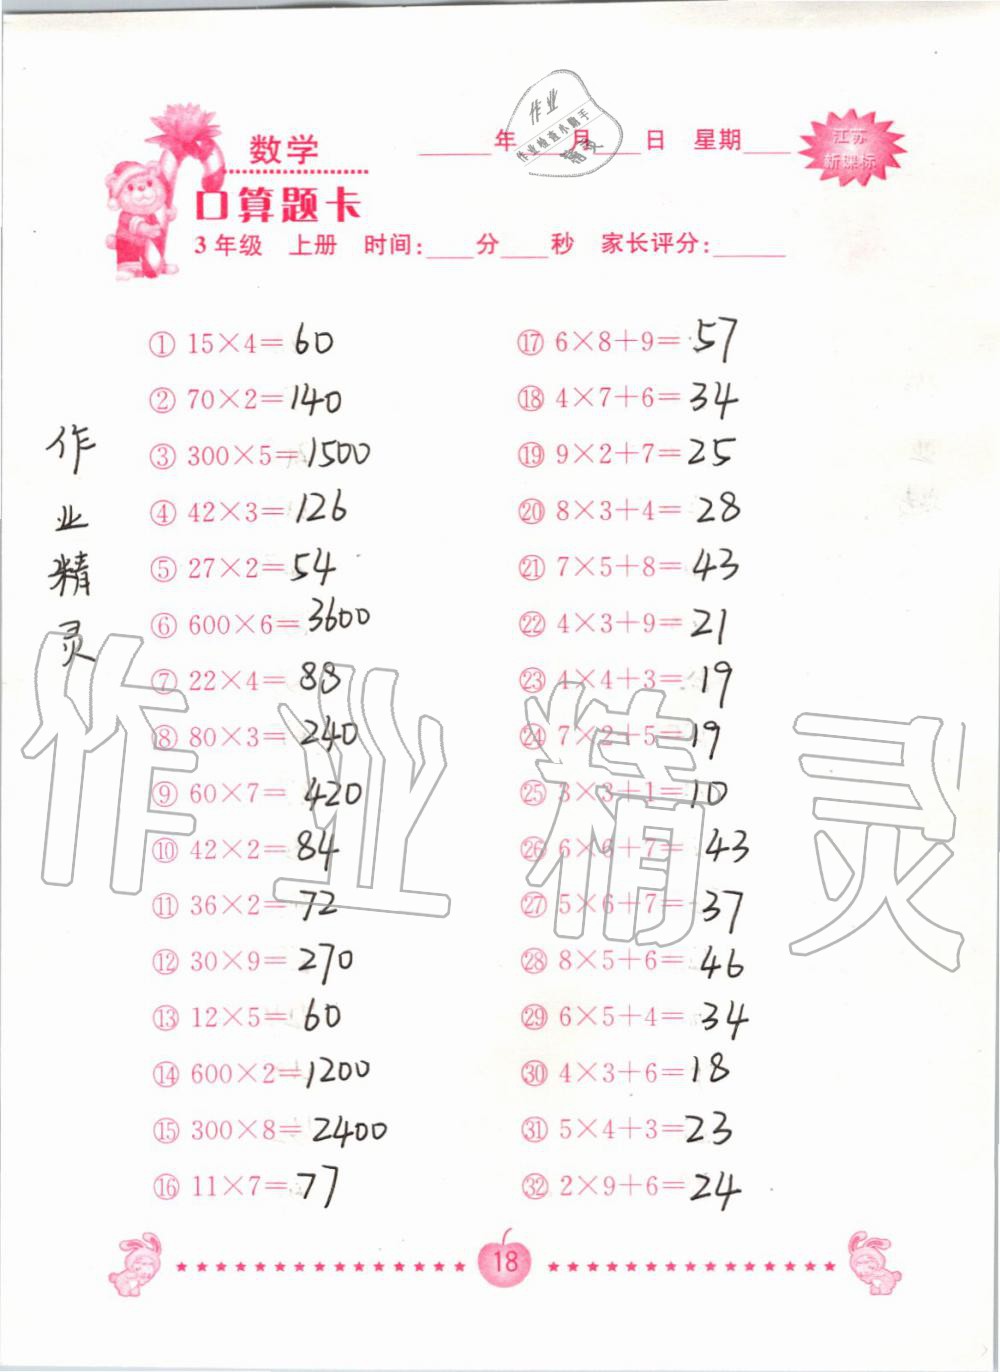 数学
____年____月____日 星期____
江苏
新课标
口算题卡
3年级 上册 时间:____分____秒 家长评分:______
作业
作业检查小助手
精灵
① 15×4=60
② 70×2=140
③ 300×5=1500
④ 42×3=126
⑤ 27×2=54
⑥ 600×6=3600
⑦ 22×4=88
⑧ 80×3=240
⑨ 60×7=420
⑩ 42×2=84
⑪ 36×2=72
⑫ 30×9=270
⑬ 12×5=60
⑭ 600×2=1200
⑮ 300×8=2400
⑯ 11×7=77
⑰ 6×8+9=57
⑱ 4×7+6=34
⑲ 9×2+7=25
⑳ 8×3+4=28
㉑ 7×5+8=43
㉒ 4×3+9=21
㉓ 4×4+3=19
㉔ 7×2+5=19
㉕ 3×3+1=10
㉖ 6×6+7=43
㉗ 5×6+7=37
㉘ 8×5+6=46
㉙ 6×5+4=34
㉚ 4×3+6=18
㉛ 5×4+3=23
㉜ 2×9+6=24
作业精灵
作业精灵
18